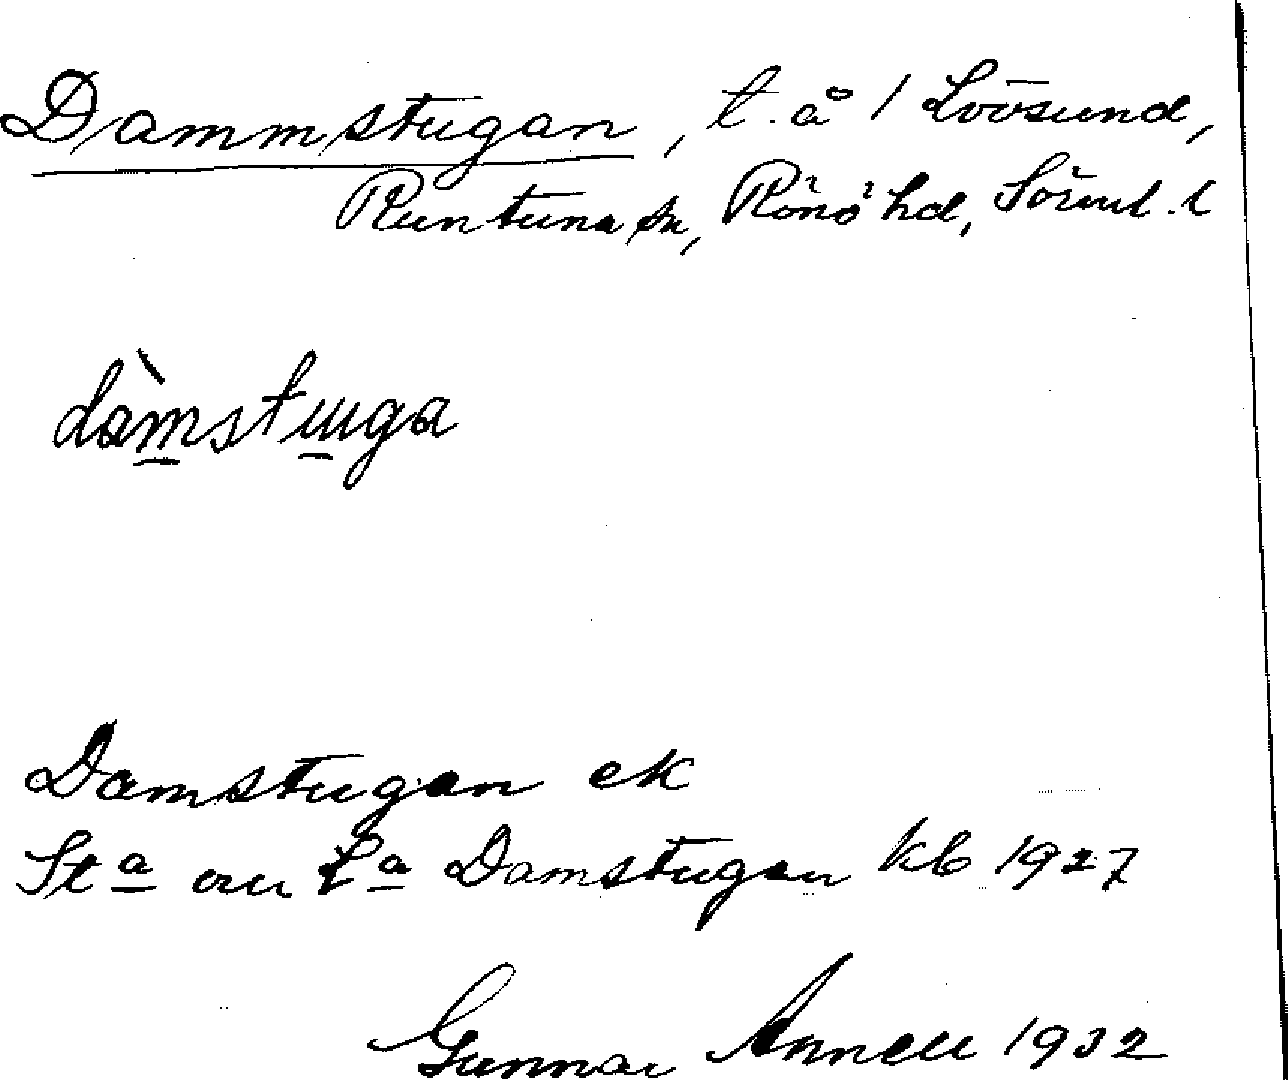 Dammstugan, t. å / Lövsund,
Runtuna sn, Rönö hd, Sörml. l
dàmstuga
Damstugan ek
St<sup>a</sup> och L<sup>a</sup> Damstugan kb 1927
Gunnar Annell 1932